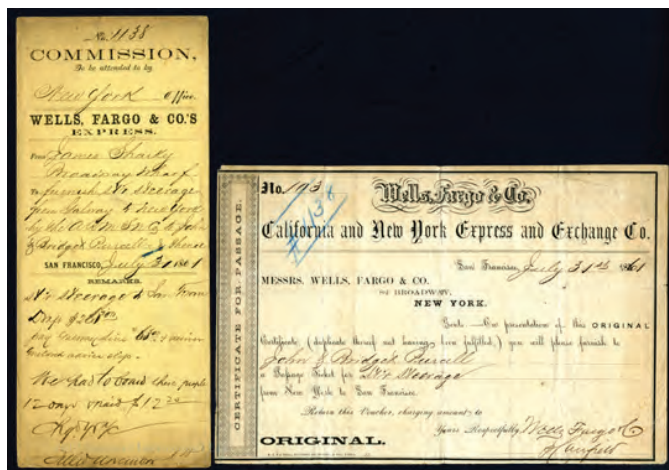 No. 1138
COMMISSION,
To be attended to by
New York Office.
WELLS, FARGO & CO.'S
EXPRESS.
From James Sharky
Broadway Wharf
To furnish Steerage
from Galway to New York
by the to John
& Bridget Purcell &
SAN FRANCISCO, July 31 1861
REMARKS.
Steerage to San Fran
We had to board these people
12 days & paid $12
No. 193
#1138
Wells, Fargo & Co.
California and New York Express and Exchange Co.
San Francisco, July 31st 1861
MESSRS. WELLS, FARGO & CO.
BROADWAY,
NEW YORK.
Gents:—On presentation of this ORIGINAL
Certificate, (duplicate thereof not having been fulfilled,) you will please furnish to
John & Bridget Purcell
a Passage Ticket for Steerage
from New York to San Francisco.
Return this Voucher, charging amount to
Yours Respectfully, Wells Fargo & Co
ORIGINAL.
CERTIFICATE FOR PASSAGE.